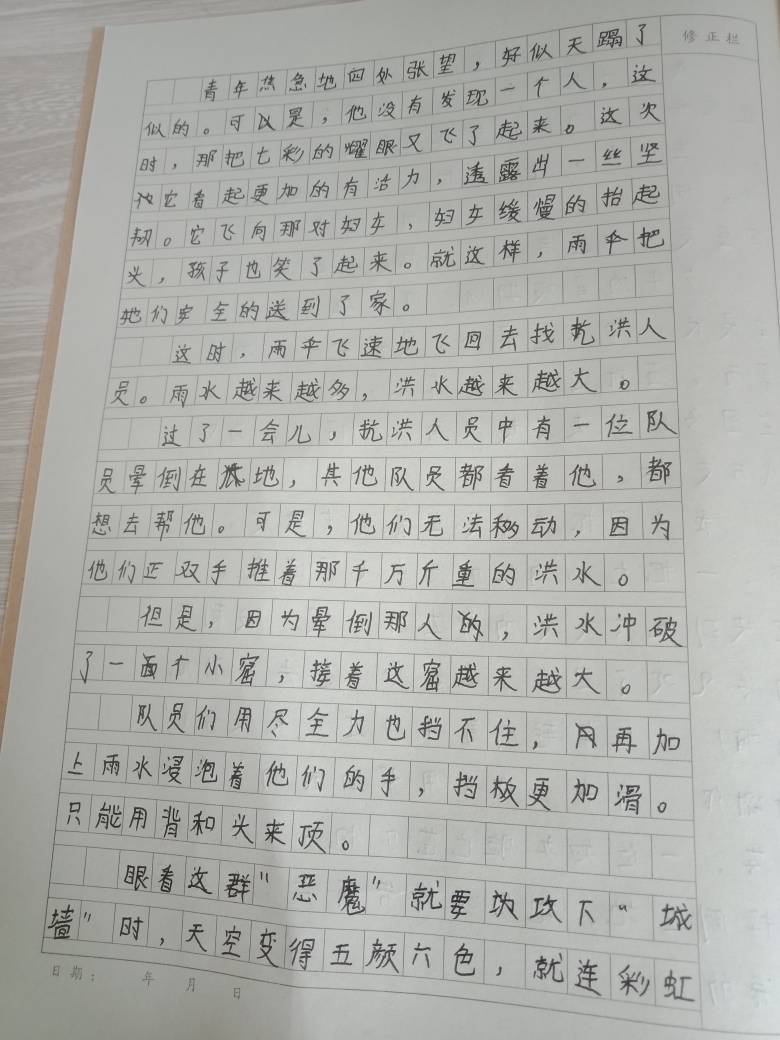 修正栏
青年焦急地四处张望，好似天蹋了
似的。可以是，他没有发现一个人，这
时，那把七彩的耀眼又飞了起来。这次
它看起更加的有活力，透露出一丝坚
韧。它飞向那对妇女，妇女缓慢的抬起
头，孩子也笑了起来。就这样，雨伞把
她们安全的送到了家。
这时，雨伞飞速地飞回去找抗洪人
员。雨水越来越多，洪水越来越大。
过了一会儿，抗洪人员中有一位队
员晕倒在地，其他队员都看着他，都
想去帮他。可是，他们无法移动，因为
他们正双手推着那千万斤重的洪水。
但是，因为晕倒那人的，洪水冲破
了一面个小窟，接着这窟越来越大。
队员们用尽全力也挡不住，再加
上雨水浸泡着他们的手，挡板更加滑。
只能用背和头来顶。
眼看这群“恶魔”就要攻下“城
墙”时，天空变得五颜六色，就连彩虹
日期： 年 月 日